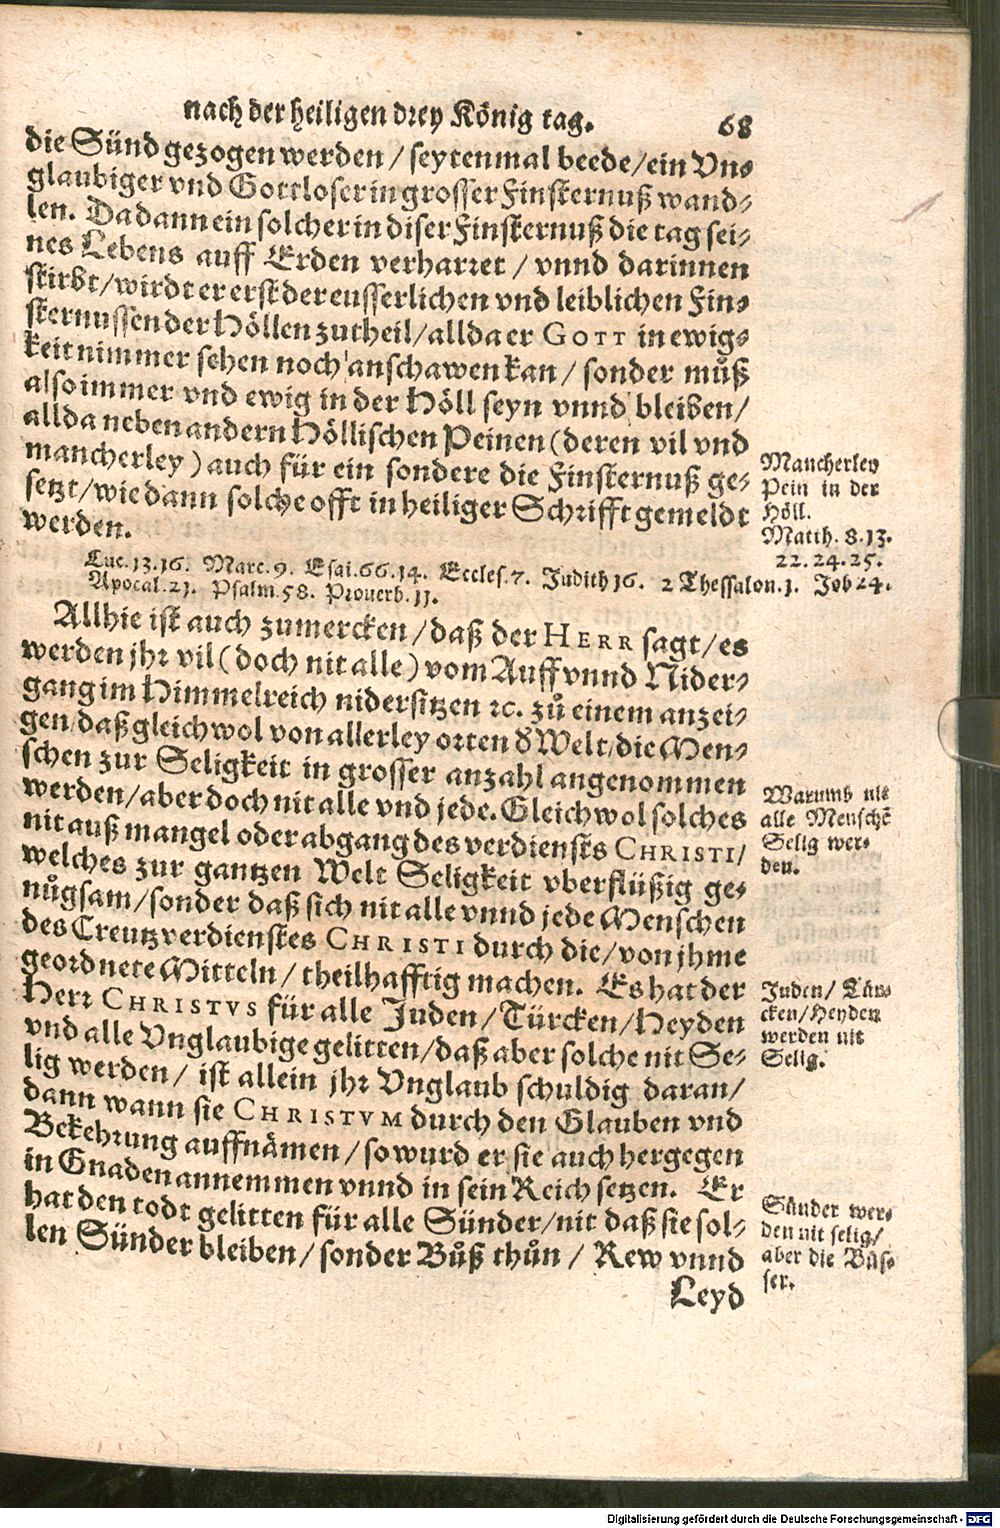 nach der heiligen drey König tag. 68
die Sünd gezogen werden / seytenmal beede / ein Vn-
glaubiger vnd Gottloser in grosser Finsternuß wand-
len. Da dann ein solcher in diser Finsternuß die tag sei-
nes Lebens auff Erden verharret / vnnd darinnen
stirbt / wirdt er erst der eusserlichen vnd leiblichen Fin-
sternussen der Höllen zutheil / allda er GOTT in ewig-
keit nimmer sehen noch anschawen kan / sonder muͦß
also immer vnd ewig in der Höll seyn vnnd bleiben /
allda neben andern Höllischen Peinen (deren vil vnd
mancherley) auch für ein sondere die Finsternuß ge-
setzt / wie dann solche offt in heiliger Schrifft gemeldt
werden.
Mancherley
Pein in der
Höll.
Matth. 8.13.
22.24.25.
Luc.13.16. Marc.9. Esai.66.14. Eccles.7. Judith 16. 2 Thessalon.1. Job 24.
Apocal.21. Psalm.58. Prouerb.11.
Allhie ist auch zumercken / daß der HERR sagt / es
werden jhr vil (doch nit alle) vom Auff vnnd Nider-
gang im Himmelreich nidersitzen ꝛc. zuͦ einem anzei-
gen / daß gleichwol von allerley orten d̕ Welt / die Men-
schen zur Seligkeit in grosser anzahl angenommen
werden / aber doch nit alle vnd jede. Gleichwol solches
nit auß mangel oder abgang des verdiensts CHRISTI /
welches zur gantzen Welt Seligkeit vberflüßig ge-
nuͦgsam / sonder daß sich nit alle vnnd jede Menschen
des Creutzverdienstes CHRISTI durch die / von jhme
geordnete Mitteln / theilhafftig machen. Es hat der
Herr CHRISTVS für alle Juden / Türcken / Heyden
vnd alle Vnglaubige gelitten / daß aber solche nit Se-
lig werden / ist allein jhr Vnglaub schuldig daran /
dann wann sie CHRISTVM durch den Glauben vnd
Bekehrung auffnämen / so wurd er sie auch hergegen
in Gnaden annemmen vnnd in sein Reich setzen. Er
hat den todt gelitten für alle Sünder / nit daß sie sol-
len Sünder bleiben / sonder Buͦß thuͦn / Rew vnnd
Leyd
Warumb nit
alle Menschē
Selig wer-
den.
Juden / Tür-
cken / Heyden
werden nit
Selig.
Sünder wer-
den nit selig /
aber die Büs-
ser.
Digitalisierung gefördert durch die Deutsche Forschungsgemeinschaft - DFG